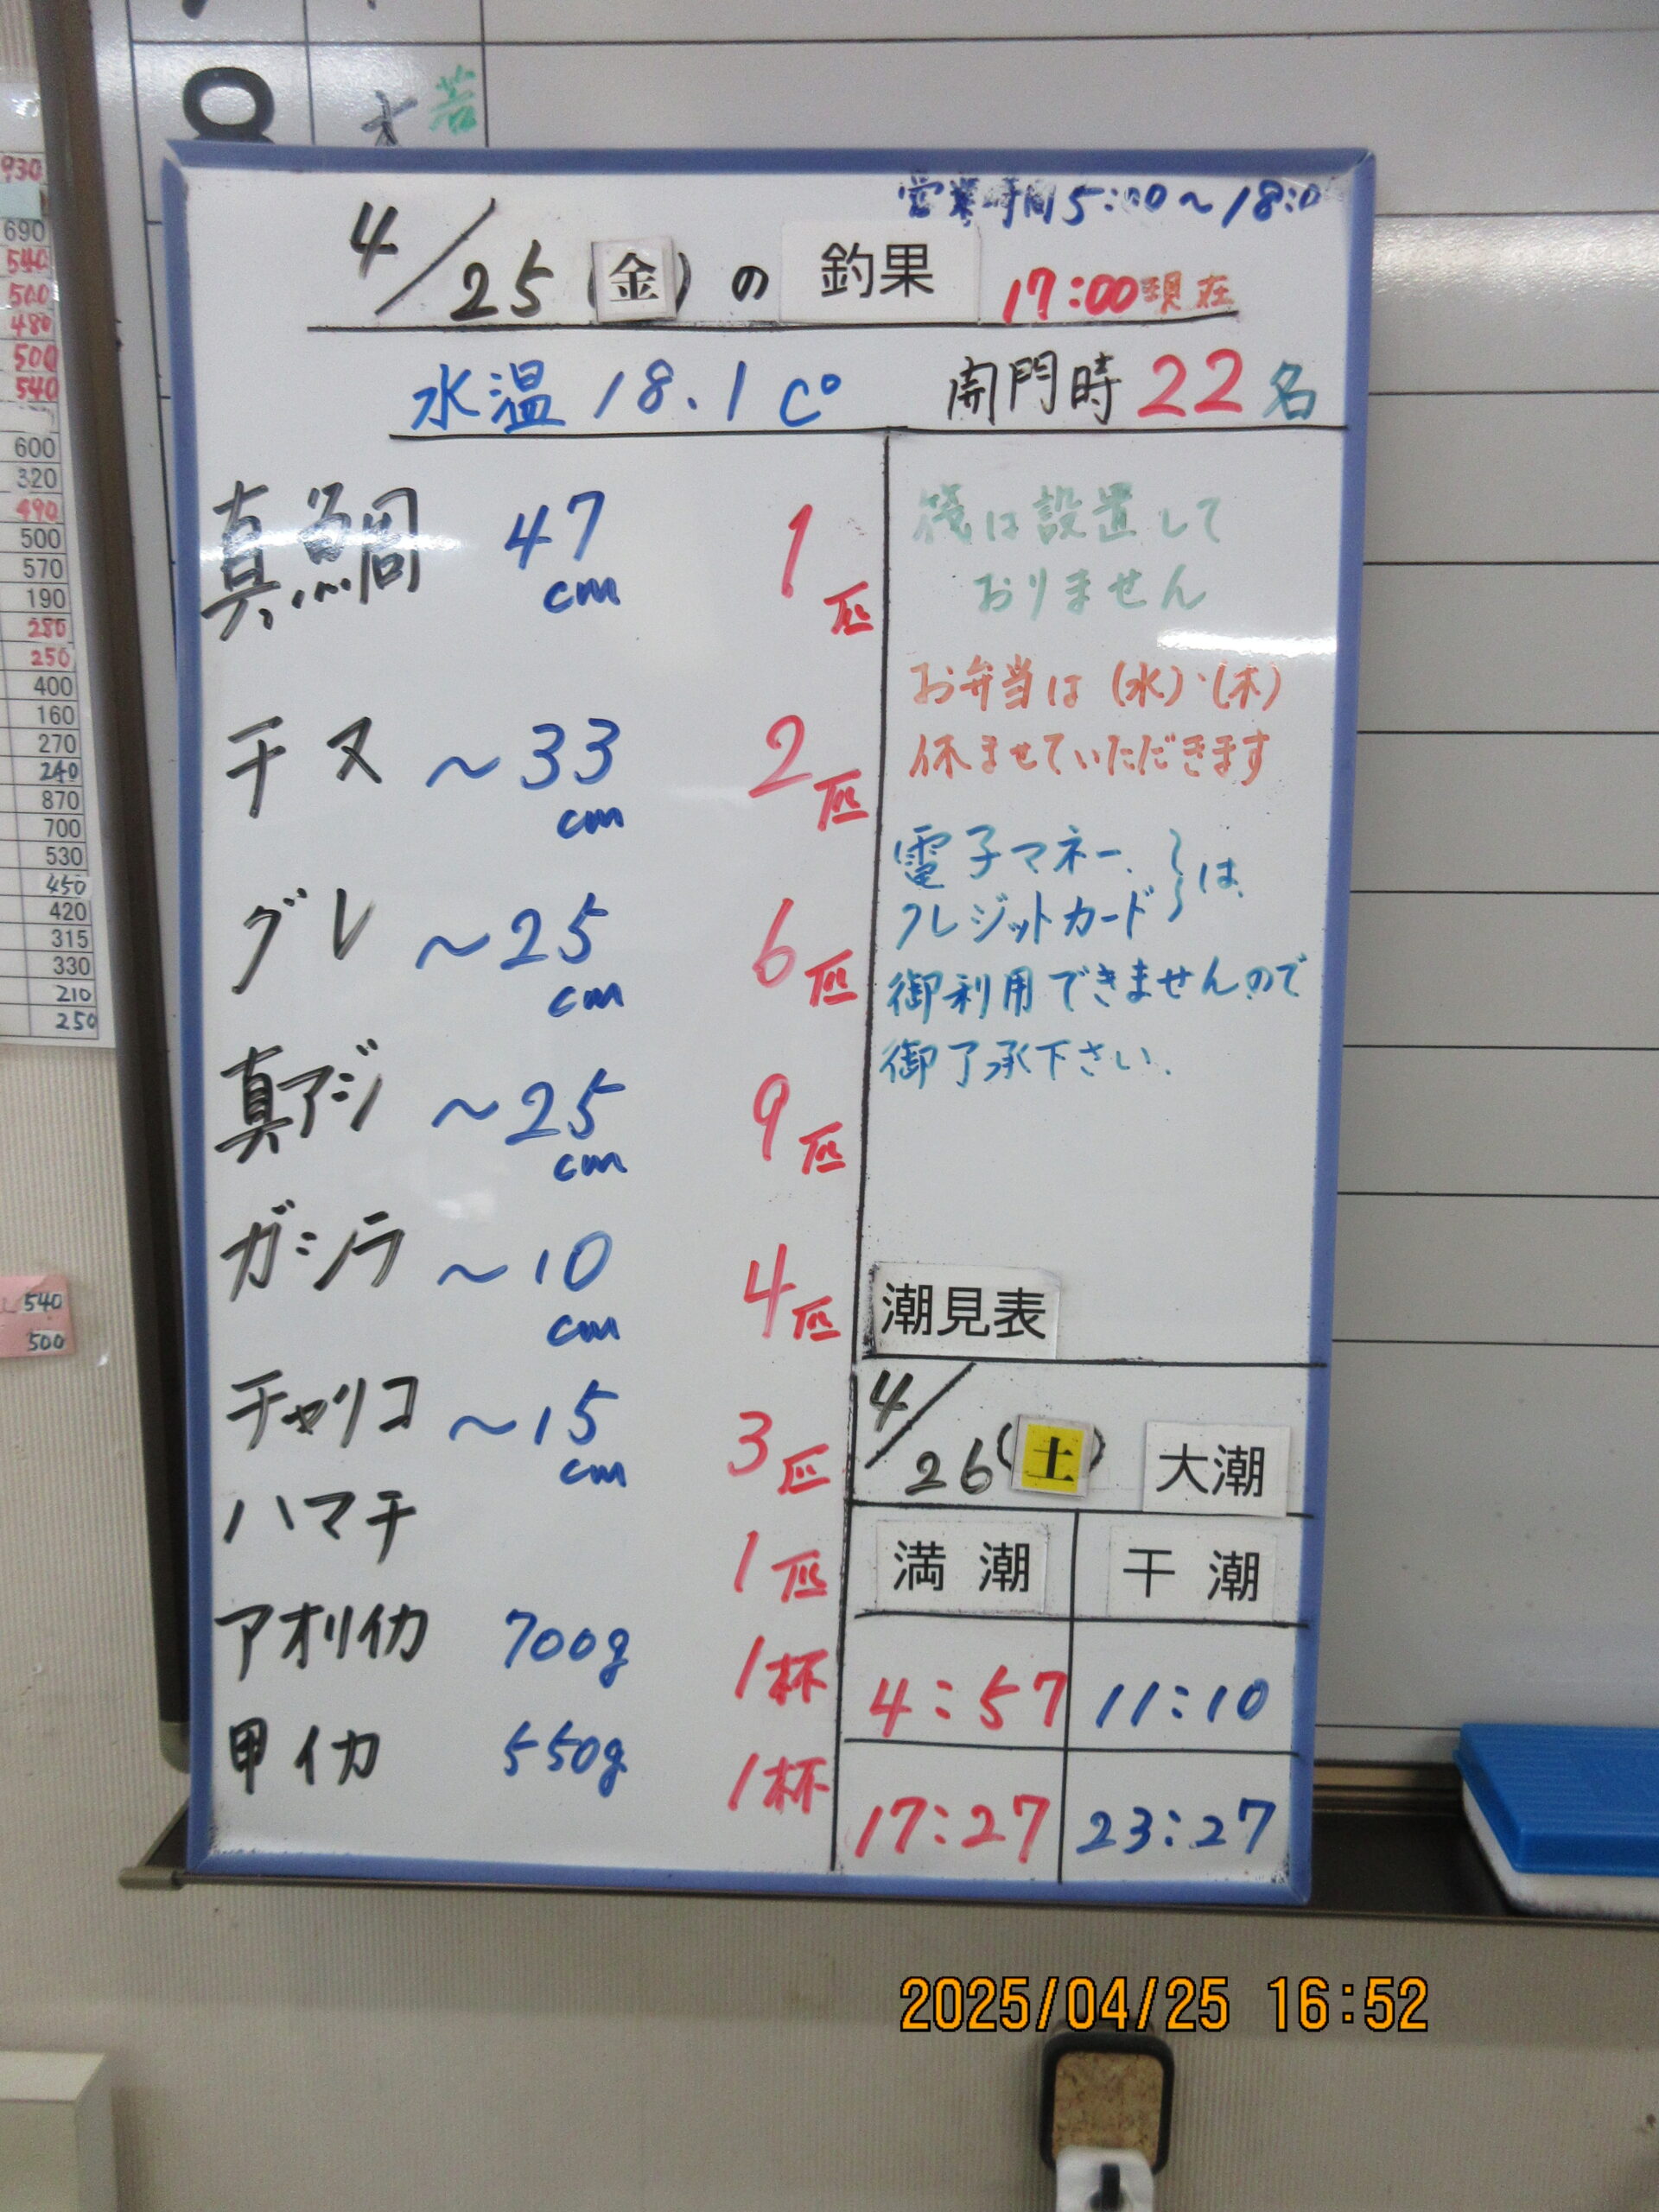 若
930
690
540
500
480
500
540
600
320
490
500
570
190
280
250
400
160
270
240
870
700
530
450
420
315
330
210
250
540
500
営業時間 5:00～18:0
4/25(金)の 釣果 17:00現在
水温 18.1 C° 開門時 22名
真鯛 47cm 1匹
チヌ ～33cm 2匹
グレ ～25cm 6匹
真アジ ～25cm 9匹
ガシラ ～10cm 4匹
チャリコ ～15cm 3匹
ハマチ 1匹
アオリイカ 700g 1杯
甲イカ 550g 1杯
筏は設置して
おりません
お弁当は(水)・(木)
休ませていただきます
電子マネー、
クレジットカード } は、
御利用できませんので
御了承下さい。
潮見表
4/26(土) 大潮
満潮 干潮
4:57 11:10
17:27 23:27
2025/04/25 16:52